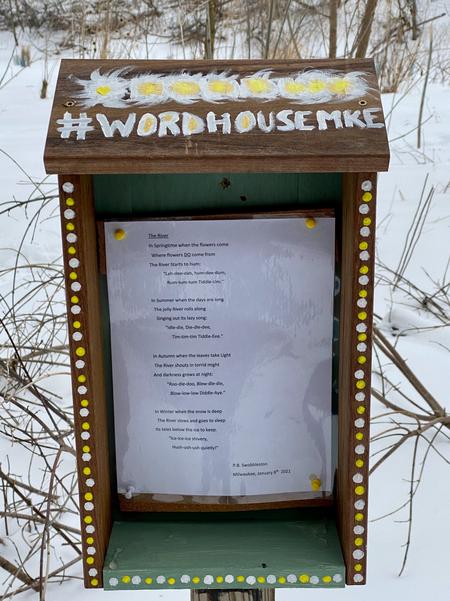 #WORDHOUSEMKE
The River
In Springtime when the flowers come
Where flowers DO come from
The River Starts to hum:
"Lah-dee-dah, hum-dee-dum,
Rum-tum-tum Tiddle-Um."
In Summer when the days are long
The jolly River rolls along
Singing out its lazy song:
"Idle-die, Die-die-dee,
Tim-tim-tim Tiddle-Eee."
In Autumn when the leaves take Light
The River shouts in torrid might
And darkness grows at night:
"Roo-die-doo, Blow-die-die,
Blow-low-low Diddle-Aye."
In Winter when the snow is deep
The River slows and goes to sleep
Its tales below the ice to keep.
"Ice-ice-ice shivery,
Hush-ush-ush quietly!"
P.B. Swobbleston
Milwaukee, January 8th 2021